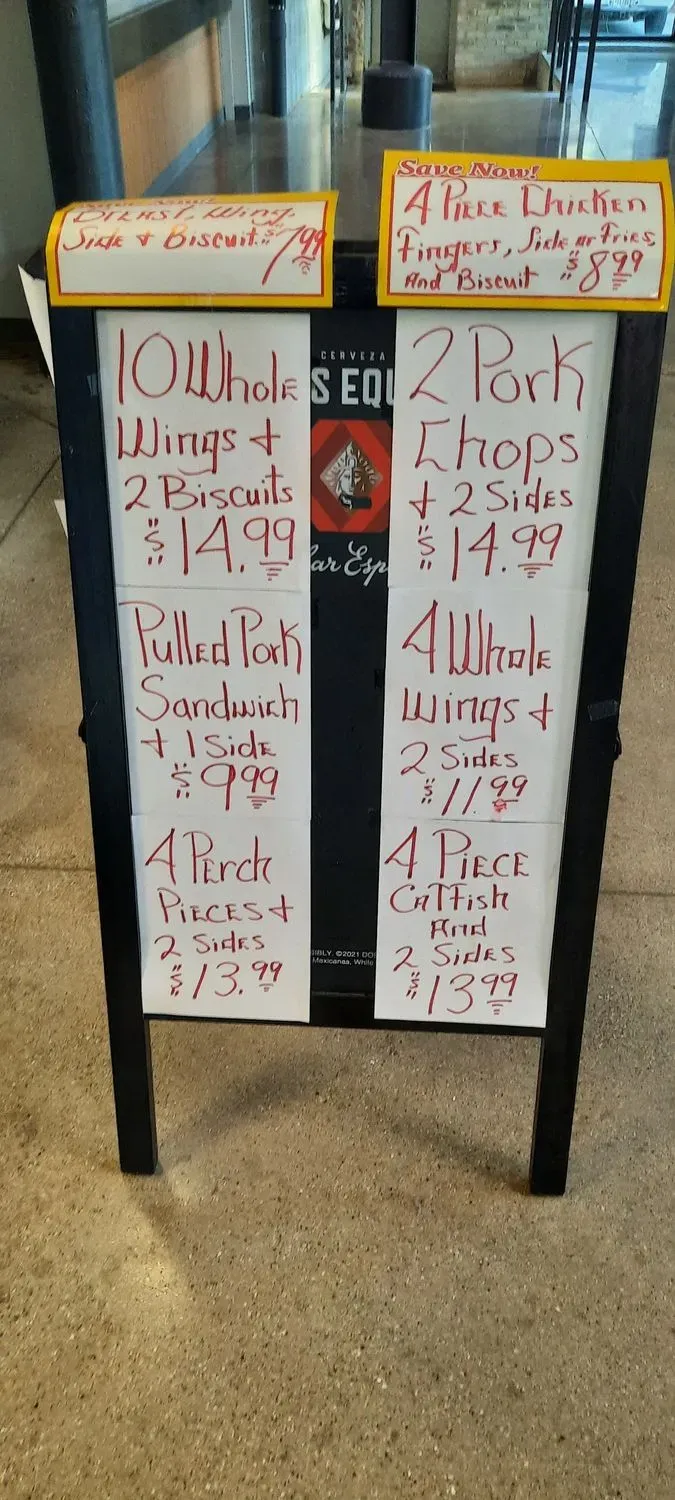 Breast, Wing,
Side + Biscuit $7.99
Save Now!
4 Piece Chicken
Fingers, Side or Fries,
And Biscuit $8.99
10 Whole
Wings +
2 Biscuits
$14.99
2 Pork
Chops
+ 2 Sides
$14.99
Pulled Pork
Sandwich
+ 1 Side
$9.99
4 Whole
Wings +
2 Sides
$11.99
4 Perch
Pieces +
2 Sides
$13.99
4 Piece
Catfish
And
2 Sides
$13.99
CERVEZA
S EQU
ar Esp
SIBLY. ©2021 DO
Mexicanas, White